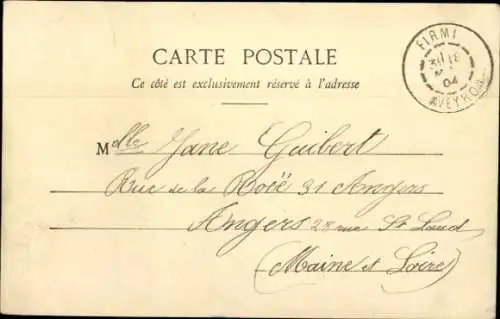 CARTE POSTALE
Ce côté est exclusivement réservé à l'adresse
FIRMI
04
AVEYRON
Melle Jane Guibert
Rue de la Roë 31 Angers
Angers 28 rue St Laud
(Maine et Loire)